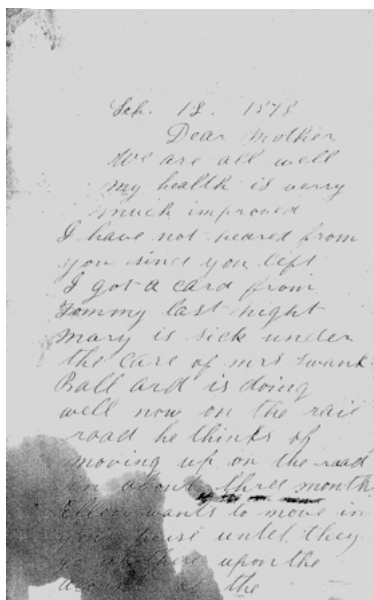 Feb. 12. 1878
Dear Mother
We are all well
my health is verry
much improved
I have not heared from
you since you left
I got a card from
Tommy last night
Mary is sick under
the care of mrs Swank
Ballard is doing
well now on the rail
road he thinks of
moving up on the road
in about three month
Ellen wants to move in
your house until they
go up there upon the
of the